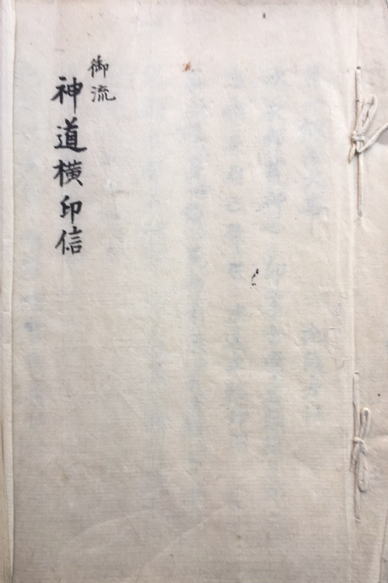 御流
神道横印信